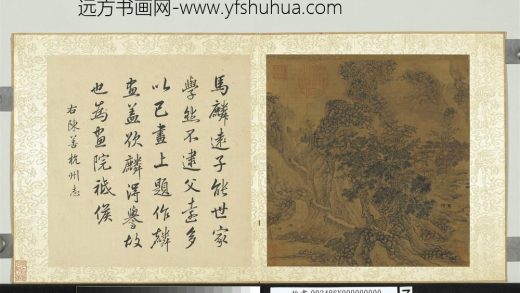 远方书画网-www.yfshuhua.com
馬麟遠子能世家
學然不逮父遠多
以己畫上題作麟
畫蓋欲麟得譽故
也為畫院祗候
右陳善杭州志